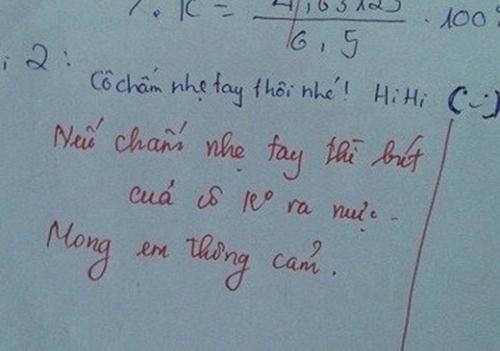 %. K = 4,63125 / 6,5 . 100%
i 2:
Cô chấm nhẹ tay thôi nhé! HiHi (--)
Nếu chấm nhẹ tay thì bút
của cô ko ra mực.
Mong em thông cảm.